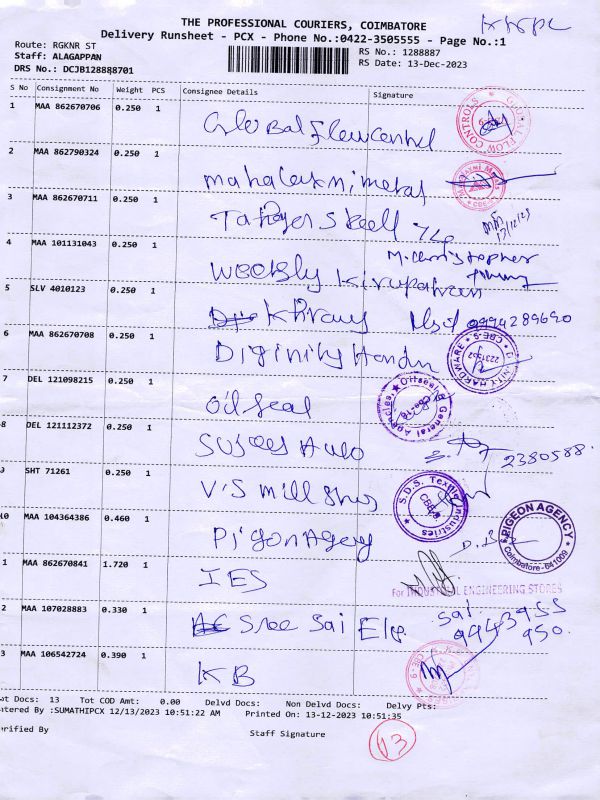 THE PROFESSIONAL COURIERS, COIMBATORE
Delivery Runsheet - PCX - Phone No.:0422-3505555 - Page No.:1
Route: RGKNR ST
RS No.: 1288887
Staff: ALAGAPPAN
RS Date: 13-Dec-2023
DRS No.: DCJB128888701
S No Consignment No Weight PCS Consignee Details Signature
1 MAA 862670706 0.250 1 Global flow control
FLOW CONTROLS
2 MAA 862790324 0.250 1 mahalaxmi metas
3 MAA 862670711 0.250 1
13/12/23
4 MAA 101131043 0.250 1 weekly
M. christopher
5 SLV 4010123 0.250 1 9994289690
6 MAA 862670708 0.250 1 Diginity
HARDWARE CBE-9
7 DEL 121098215 0.250 1 oil seal
General Agencies
8 DEL 121112372 0.250 1 Auto
2380588
9 SHT 71261 0.250 1 V.S mill
S.D.S. Textile Industries
10 MAA 104364386 0.460 1 Pigon Agency
PIGEON AGENCY Coimbatore-641009
1 MAA 862670841 1.720 1 IES
For INDUSTRIAL ENGINEERING STORES
2 MAA 107028883 0.330 1 Sree Sai Ele
Sai
9943955
950.
3 MAA 106542724 0.390 1 KB
ot Docs: 13 Tot COD Amt: 0.00 Delvd Docs: Non Delvd Docs: Delvy Pts:
ntered By :SUMATHIPCX 12/13/2023 10:51:22 AM Printed On: 13-12-2023 10:51:35
13
erified By Staff Signature